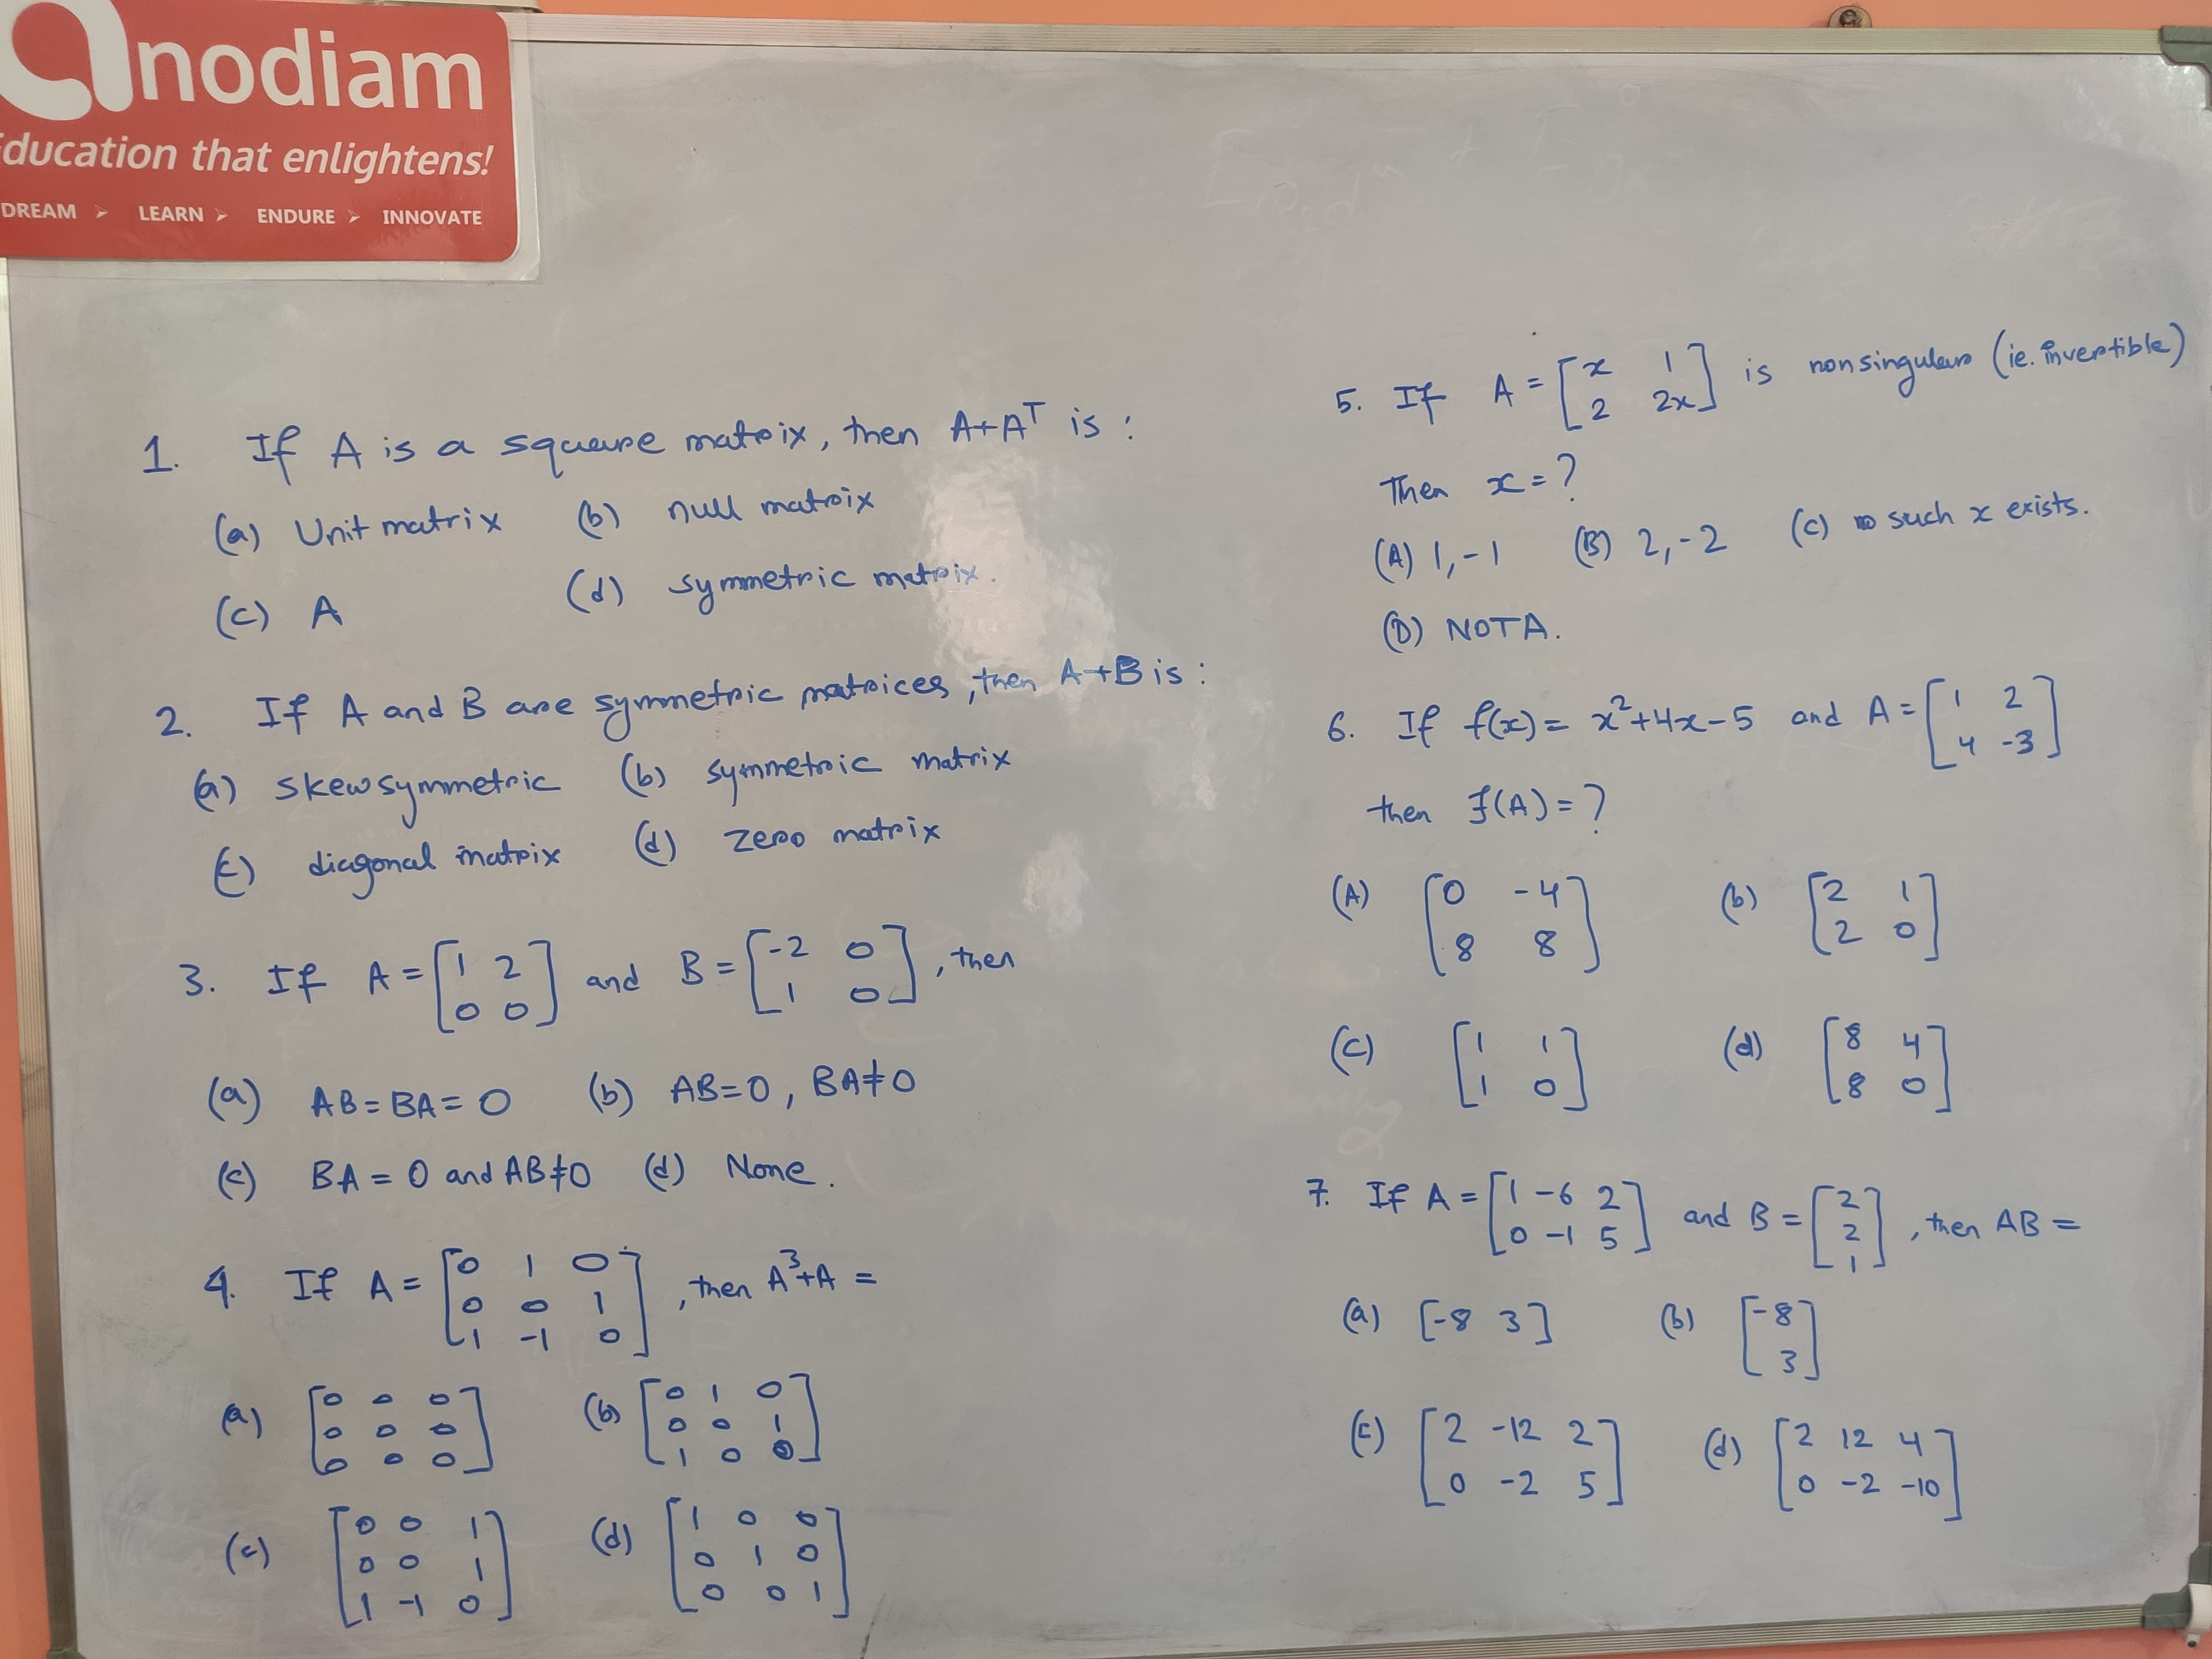 anodiam
Education that enlightens!
DREAM > LEARN > ENDURE > INNOVATE
1. If A is a square matrix, then A+Aᵀ is :
(a) Unit matrix (b) null matrix
(c) A (d) symmetric matrix.
2. If A and B are symmetric matrices, then A+B is :
(a) skewsymmetric (b) symmetric matrix
(c) diagonal matrix (d) zero matrix
3. If A = [1 2; 0 0] and B = [-2 0; 1 0], then
(a) AB = BA = 0 (b) AB=0, BA≠0
(c) BA = 0 and AB≠0 (d) None.
4. If A = [0 1 0; 0 0 1; 1 -1 0], then A³+A =
(a) [0 0 0; 0 0 0; 0 0 0] (b) [0 1 0; 0 0 1; 1 0 0]
(c) [0 0 1; 0 0 1; 1 -1 0] (d) [1 0 0; 0 1 0; 0 0 1]
5. If A = [x 1; 2 2x] is nonsingular (ie. invertible)
Then x = ?
(A) 1, -1 (B) 2, -2 (C) no such x exists.
(D) NOTA.
6. If f(x) = x²+4x-5 and A = [1 2; 4 -3]
then f(A) = ?
(A) [0 -4; 8 8] (b) [2 1; 2 0]
(C) [1 1; 1 0] (d) [8 4; 8 0]
7. If A = [1 -6 2; 0 -1 5] and B = [2; 2; 1], then AB =
(a) [-8 3] (b) [-8; 3]
(c) [2 -12 2; 0 -2 5] (d) [2 12 4; 0 -2 -10]